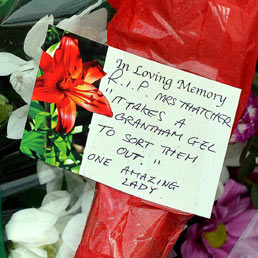 In Loving Memory
R.I.P. MRS THATCHER
"IT TAKES A
GRANTHAM GEL
TO SORT THEM
OUT."
ONE AMAZING
LADY